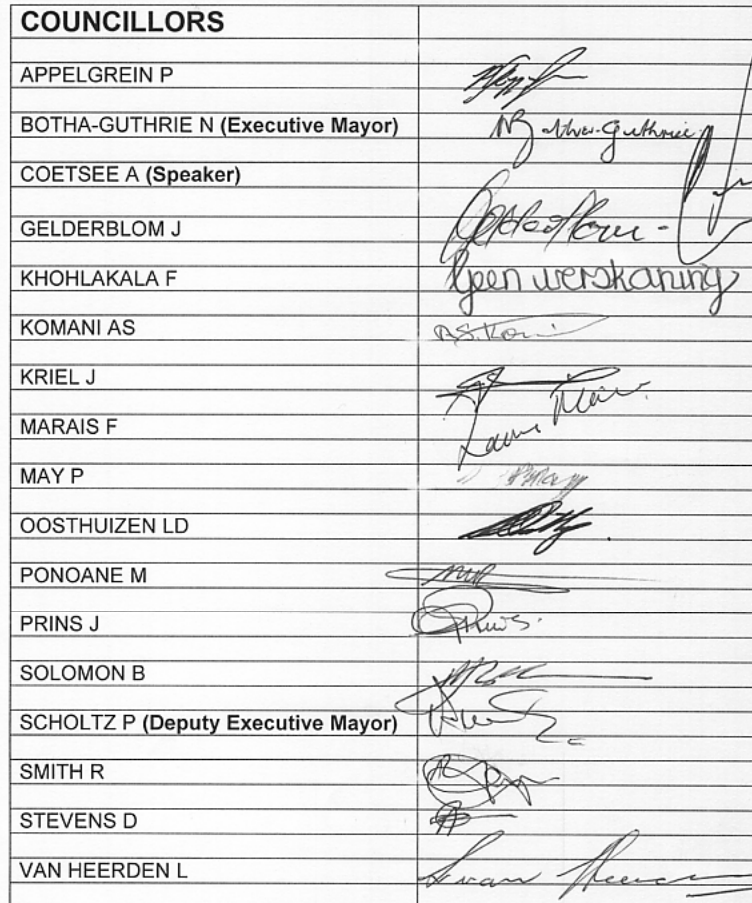 COUNCILLORS
APPELGREIN P
BOTHA-GUTHRIE N (Executive Mayor) NBotha-Guthrie
COETSEE A (Speaker)
GELDERBLOM J Gelderblom
KHOHLAKALA F Geen verskoning
KOMANI AS A.S. Komani
KRIEL J
MARAIS F
MAY P PMay
OOSTHUIZEN LD
PONOANE M
PRINS J Prins
SOLOMON B
SCHOLTZ P (Deputy Executive Mayor)
SMITH R
STEVENS D
VAN HEERDEN L